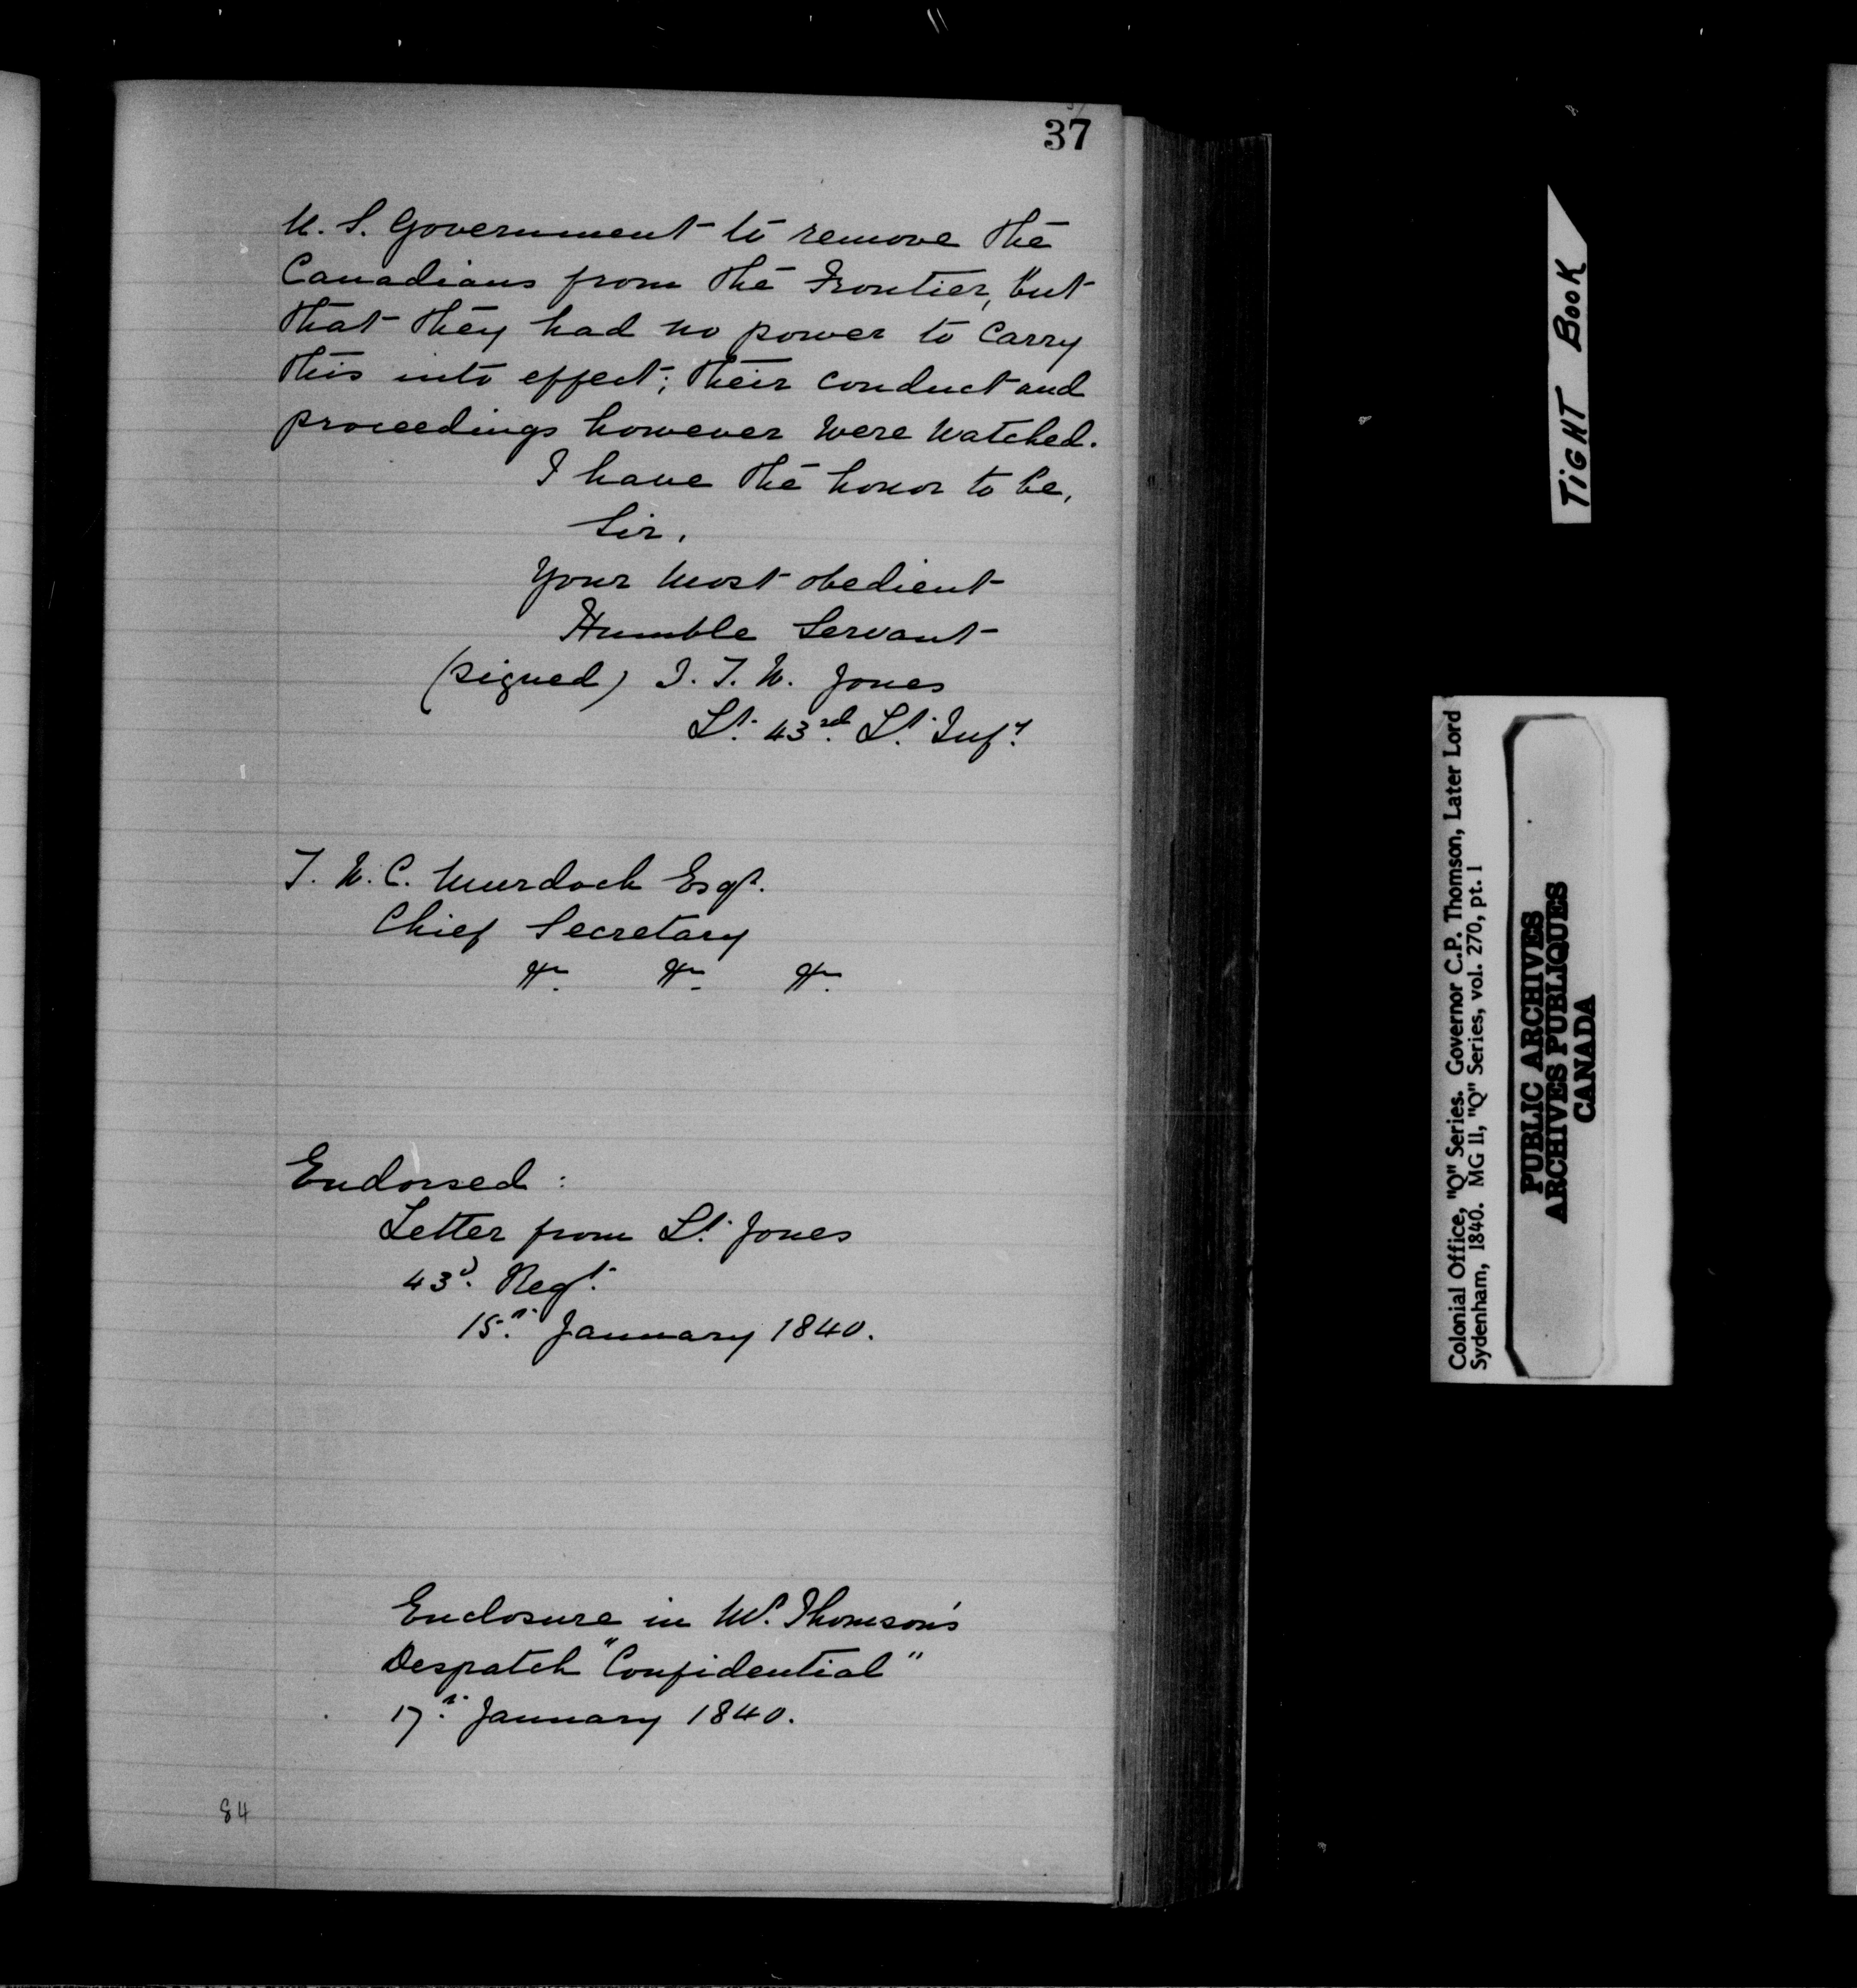 37
U. S. Government to remove the
Canadians from the Frontier, but
that they had no power to carry
this into effect; their conduct and
proceedings however were watched.
I have the honor to be,
Sir,
Your most obedient
Humble Servant
(signed) I. T. W. Jones
Lt. 43rd. Lt. Infy.
T. W. C. Murdoch Esqr.
Chief Secretary
Endorsed:
Letter from Lt. Jones
43d. Regt.
15th. January 1840.
Enclosure in Mr. Thomson's
Despatch "Confidential"
17th. January 1840.
84
TIGHT BOOK
Colonial Office, "Q" Series. Governor C.P. Thomson, Later Lord
Sydenham, 1840. MG 11, "Q" Series, vol. 270, pt. 1
PUBLIC ARCHIVES
ARCHIVES PUBLIQUES
CANADA